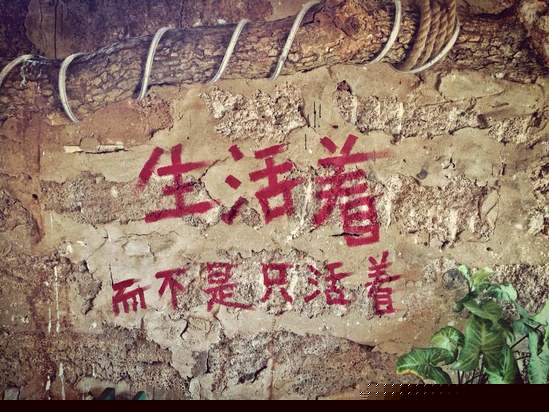 生活着
而不是只活着